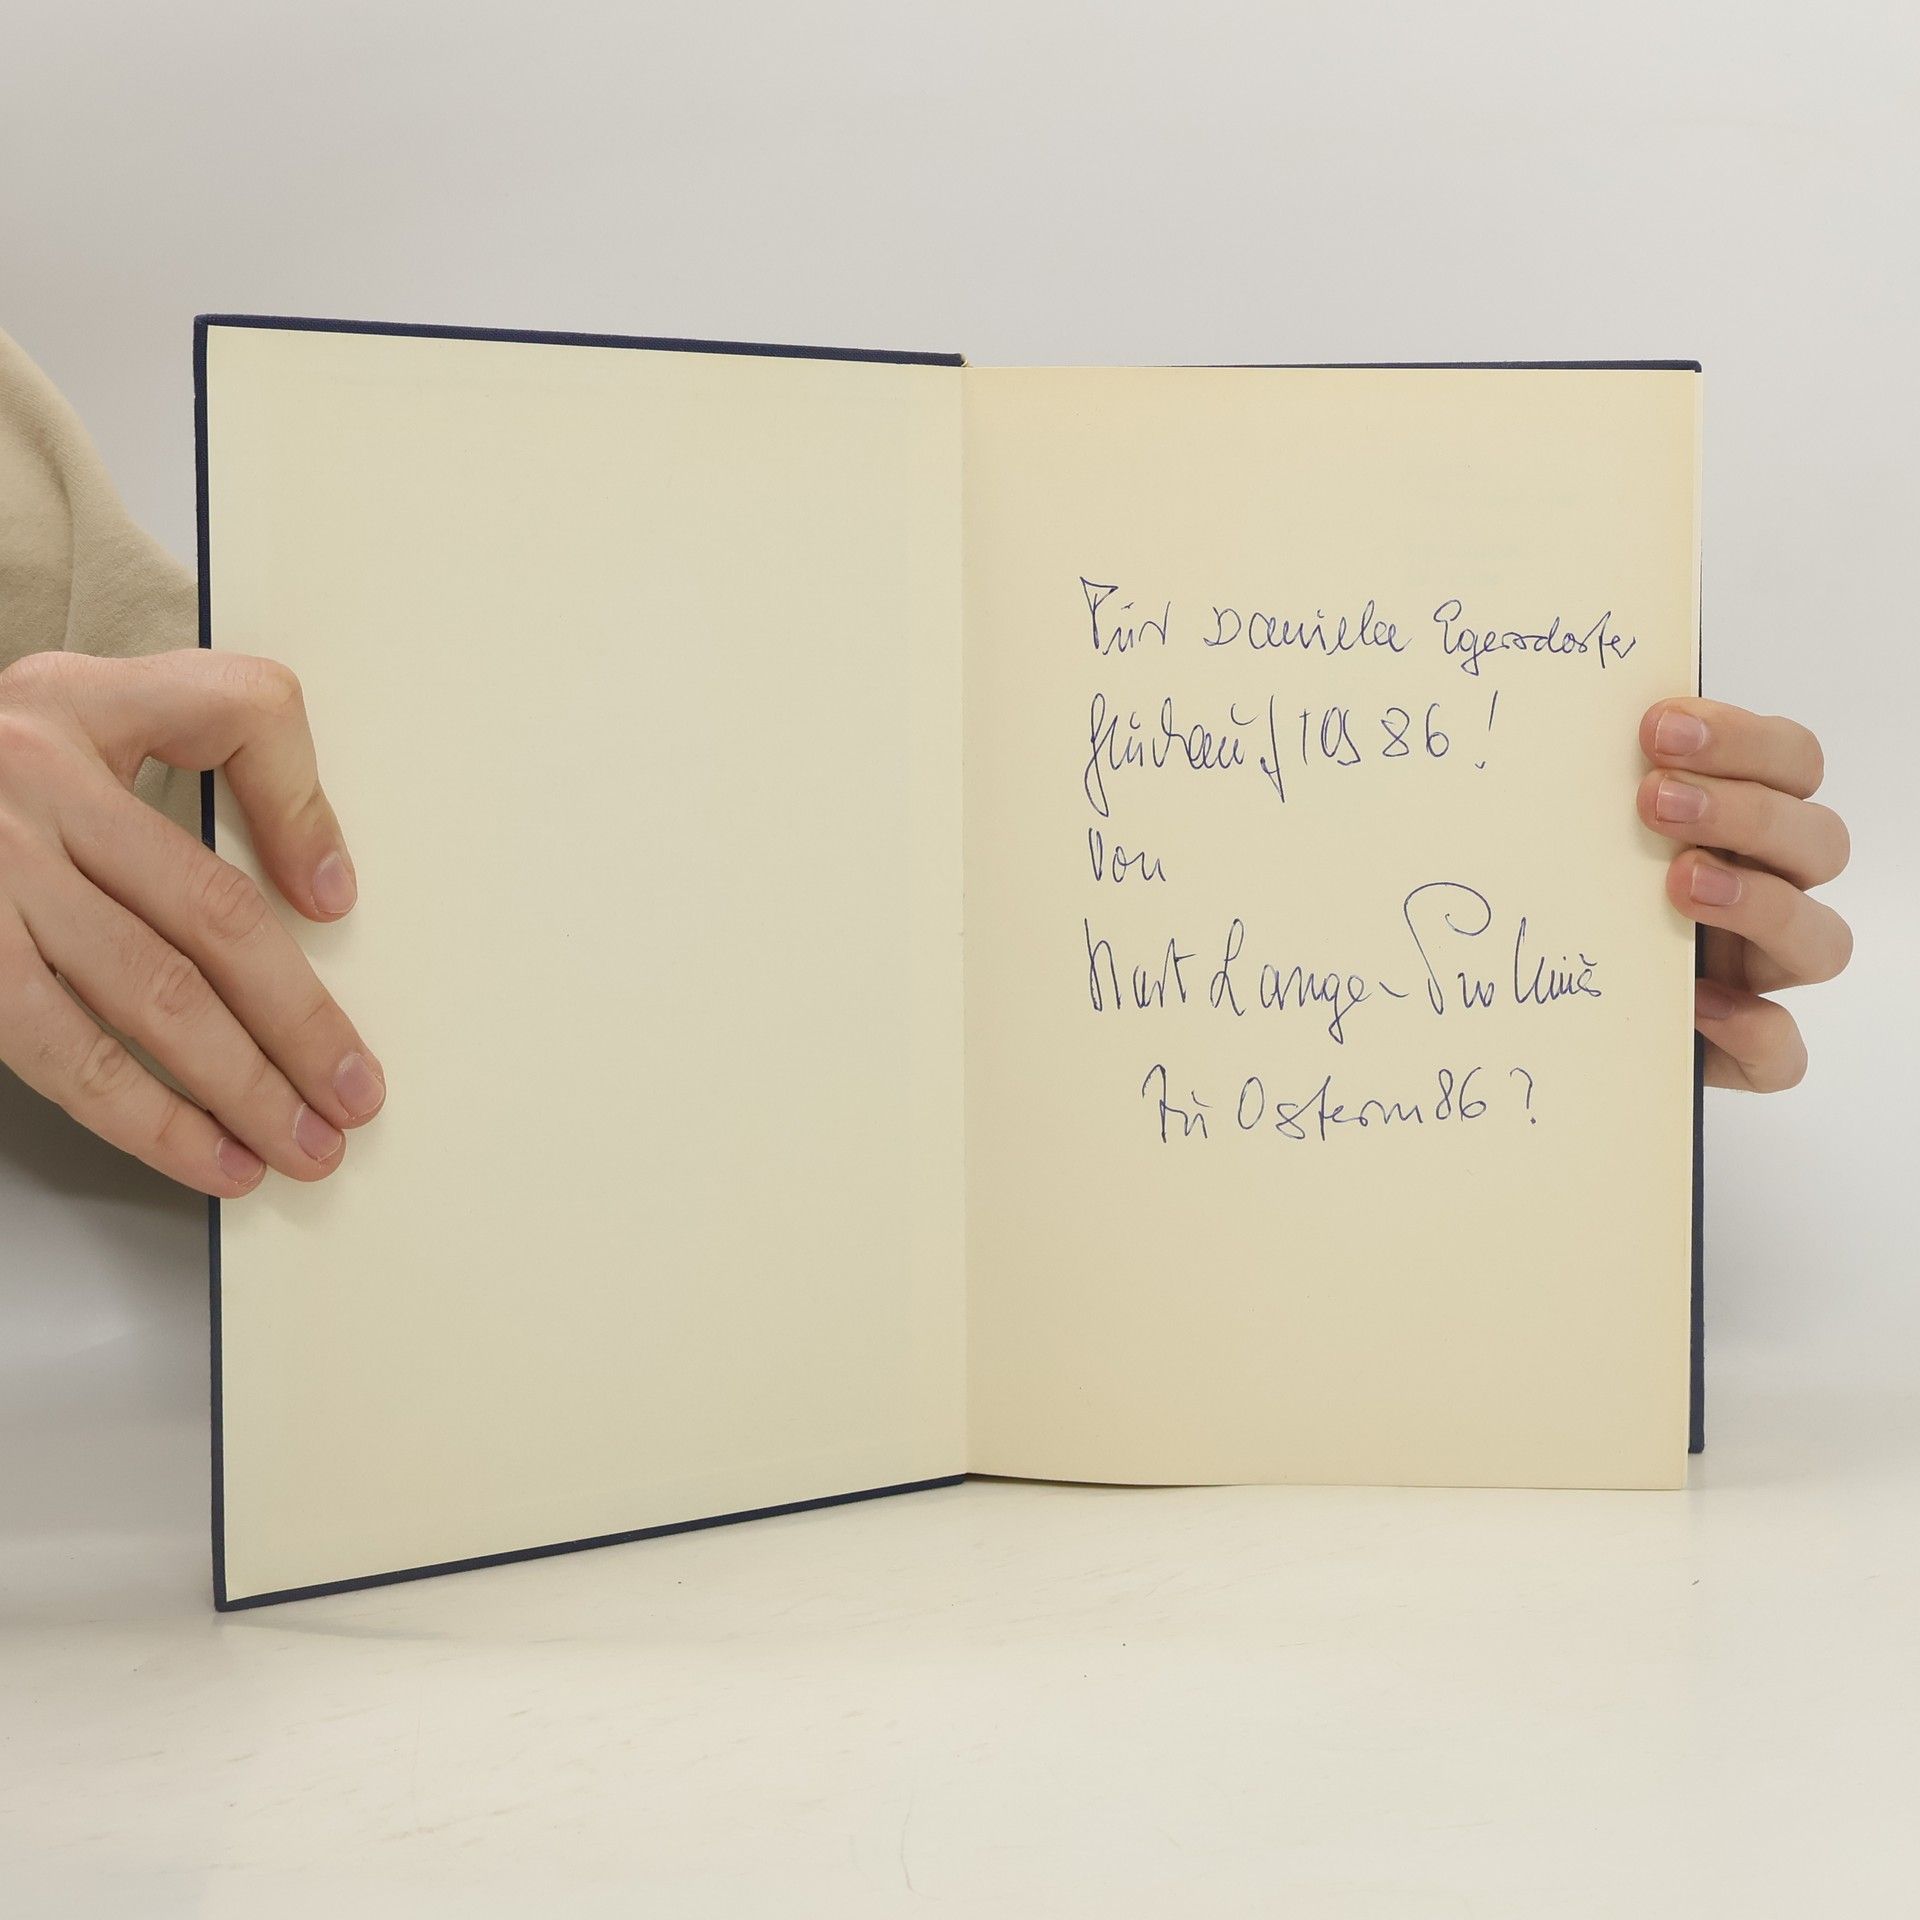 Für Daniela Egersdorfer
Glückauf 1986!
Von
Kurt Lange-
Zu Ostern 86?